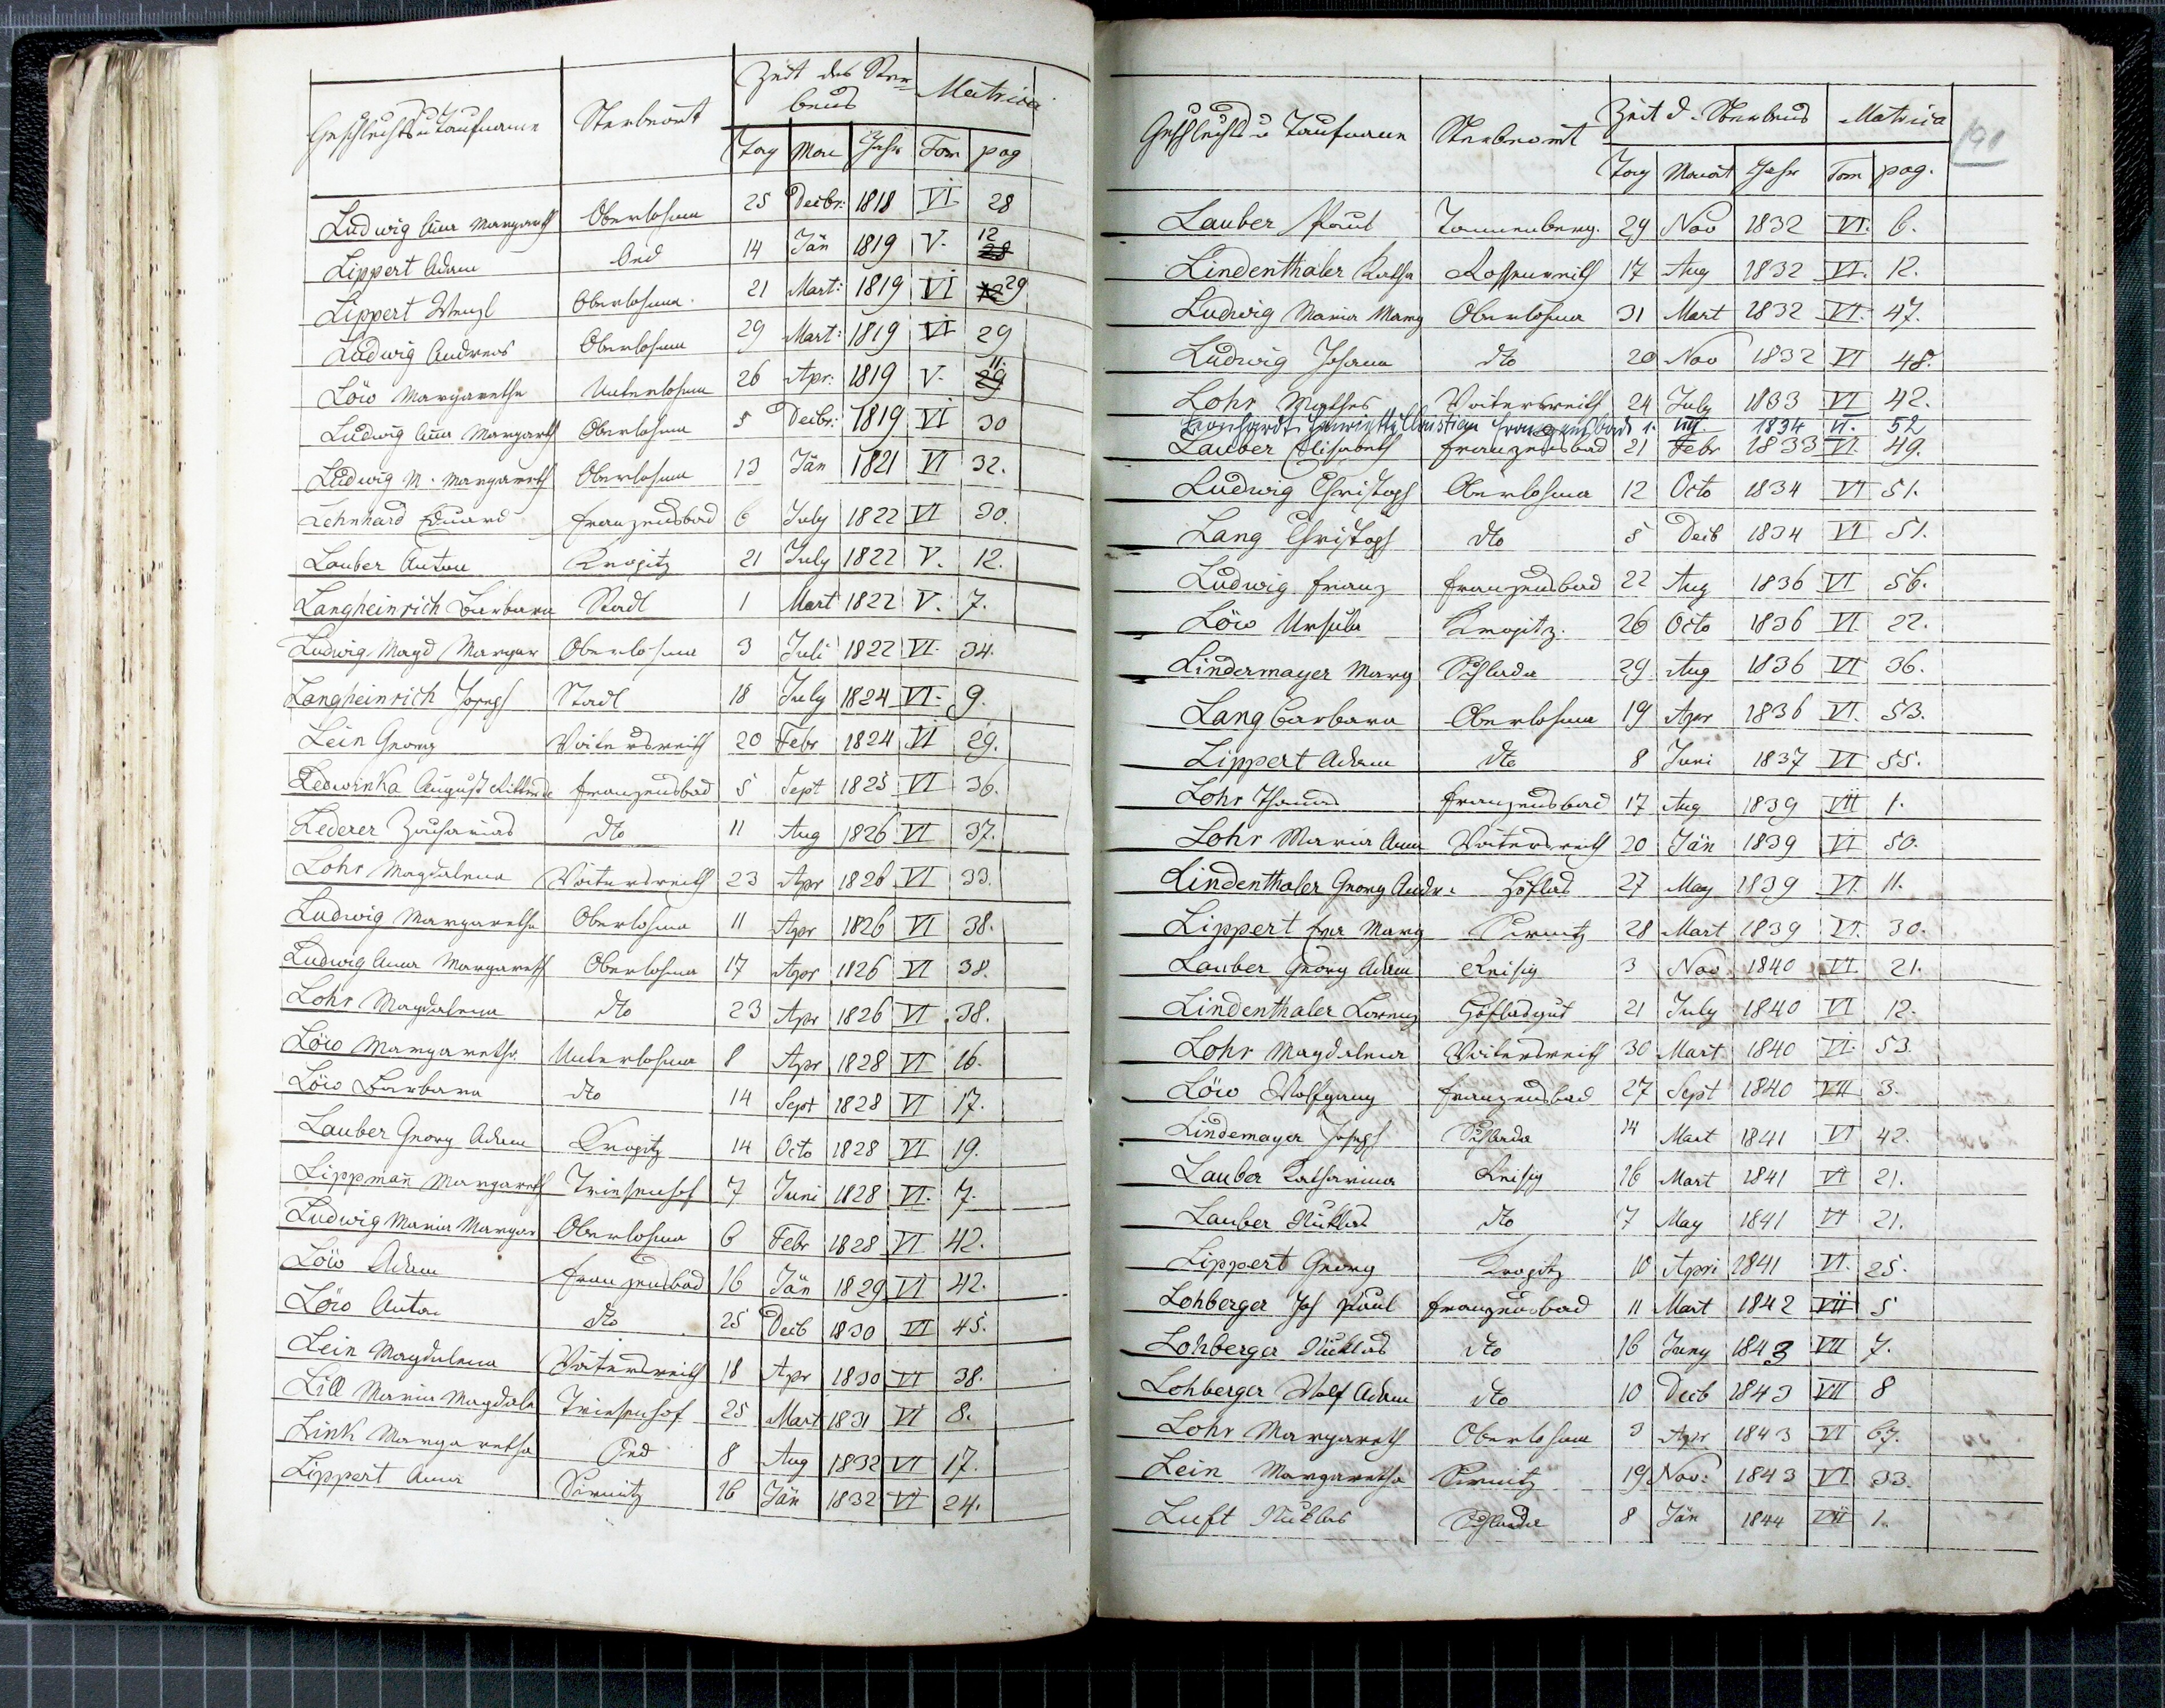 Geschlechts u Taufname Sterbeort Zeit des Ster=
bens Matrica
Tag Mon Jahr Tom pag
Ludwig Anna Margareth Oberlohma 25 Decbr: 1818 VI 28
Lippert Adam Oed 14 Jän 1819 V. 12 28
Lippert Wenzl Oberlohma 21 Mart: 1819 VI 12 29
Ludwig Andreas Oberlohma 29 Mart: 1819 VI 29
Löw Margaretha Unterlohma 26 Apr: 1819 V. 11. 29
Ludwig Anna Margareth Oberlohma 5 Decbr: 1819 VI 30
Ludwig M. Margareth Oberlohma 13 Jän 1821 VI 32.
Lehnhard Eduard Franzensbad 6 July 1822 VI 30.
Lauber Anton Kropitz 21 July 1822 V. 12.
Langheinrich Barbara Stadl 1 Mart 1822 V. 7.
Ludwig Magd Margar Oberlohma 3 Juli 1822 VI. 34.
Langheinrich Joseph Stadl 18 July 1824 VI. 9.
Lein Georg Voitersreith 20 Febr 1824 VI 29.
Ledwinka August Ritter de Franzensbad 5 Sept 1825 VI 36.
Lederer Zacharias dto 11 Aug 1826 VI 37.
Lohr Magdalena Voitersreith 23 Apr 1826 VI 33.
Ludwig Margaretha Oberlohma 11 Apr 1826 VI 38.
Ludwig Anna Margareth Oberlohma 17 Apr 1826 VI 38.
Lohr Magdalena dto 23 Apr 1826 VI 38.
Löw Margaretha Unterlohma 8 Apr 1828 VI 16.
Löw Barbara dto 14 Sept 1828 VI 17.
Lauber Georg Adam Kropitz 14 Octo 1828 VI 19.
Lippmañ Margareth Triesenhof 7 Juni 1828 VI. 7.
Ludwig Maria Margar Oberlohma 6 Febr 1828 VI 42.
Löw Adam Franzensbad 16 Jän 1829 VI 42.
Löw Anton dto 25 Decb 1830 VI 45.
Lein Magdalena Voitersreith 18 Apr 1830 VI 38.
Lill Maria Magdale Triesenhof 25 Mart 1831 VI 8.
Link Margaretha Oed 8 Aug 1832 VI 17.
Lippert Anna Sirmitz 16 Jän 1832 VI 24.
Geschlechts u Taufname Sterbeort Zeit d. Sterbens Matrica
Tag Monat Jahr Tom pag.
191
Lauber Paul Tannenberg. 29 Nov 1832 VI. 6.
Lindenthaler Katha Rossenreith 17 Aug 1832 VI. 12.
Ludwig Maria Marg Oberlohma 31 Mart 1832 VI. 47.
Ludwig Johann dto 20 Nov 1832 VI 48.
Lohr Mathes Voitersreith 24 July 1833 VI 42.
Leonhardt Henriette Christian Franzensbad 1. VII 1834 VI. 52
Lauber Elisabeth Franzensbad 21 Febr 1833 VI. 49.
Ludwig Christoph Oberlohma 12 Octo 1834 VI 51.
Lang Christoph dto 5 Decb 1834 VI 51.
Ludwig Franz Franzensbad 22 Aug 1836 VI 56.
Löw Ursula Kropitz. 26 Octo 1836 VI 22.
Lindermayer Marg Schlada 29 Aug 1836 VI 36.
Lang Barbara Oberlohma 19 Apr 1836 VI. 53.
Lippert Adam dto 8 Juni 1837 VI 55.
Lohr Thomas Franzensbad 17 Aug 1839 VII 1.
Lohr Maria Anna Voitersreith 20 Jän 1839 VI 50.
Lindenthaler Georg Andr. Höflas 27 May 1839 VI 11.
Lippert Eva Marg Sirmitz 28 Mart 1839 VI. 30.
Lauber Georg Adam Reisig 3 Nov 1840 VI. 21.
Lindenthaler Lorenz Höflasgut 21 July 1840 VI 12.
Lohr Magdalena Voitersreith 30 Mart 1840 VI. 53.
Löw Wolfgang Franzensbad 27 Sept 1840 VII 3.
Lindemayer Joseph Schlada 14 Mart 1841 VI 42.
Lauber Katharina Reisig 16 Mart 1841 VI 21.
Lauber Niklas dto 7 May 1841 VI 21.
Lippert Georg Kropitz 10 Apri 1841 VI. 25.
Lohberger Jos Paul Franzensbad 11 Mart 1842 VII 5
Lohberger Niklas dto 16 Juny 1843 VII 7.
Lohberger Wolf Adam dto 10 Decb 1843 VII 8
Lohr Margareth Oberlohma 3 Apr 1843 VI 67.
Lein Margaretha Sirmitz 19 Nov: 1843 VI 33.
Luft Niklas Schlada 8 Jän 1844 VII 1.